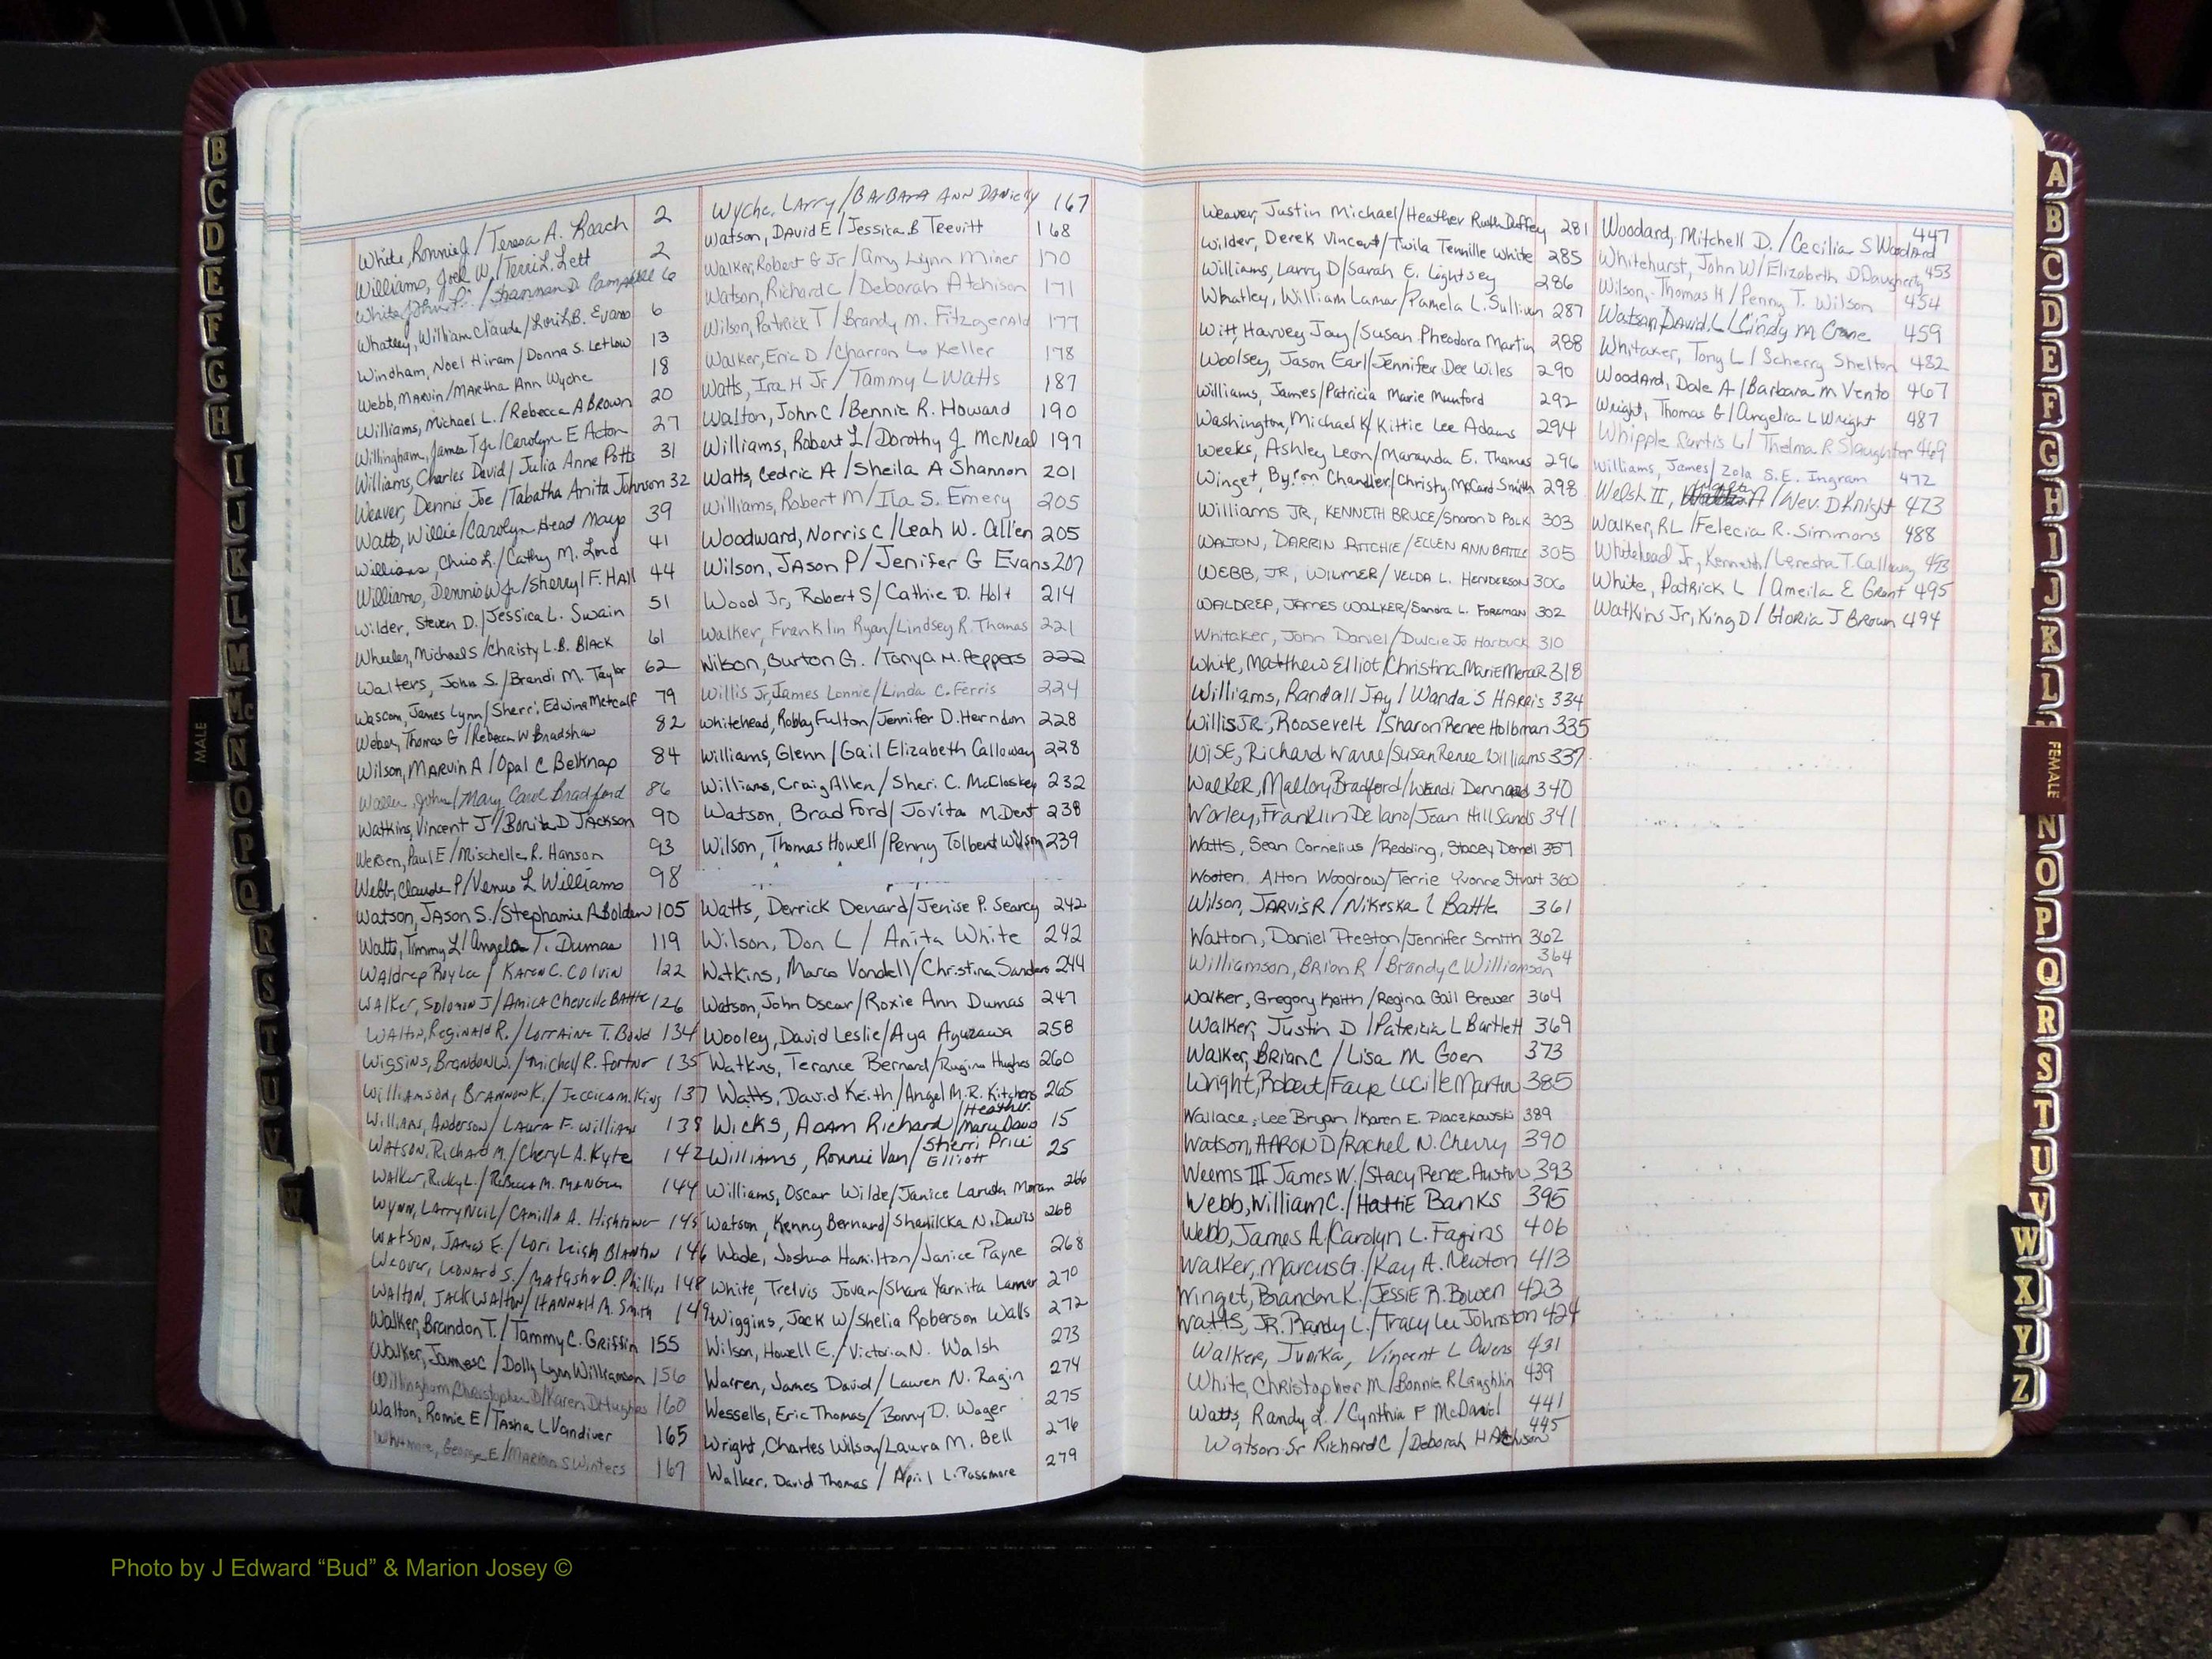 White, Ronnie J / Teresa A. Roach 2
Williams, Joel W. / Terri L. Lett 2
White, John P. / Shannan D. Campbell 6
Whatley, William Claude / Lori L.B. Evans 6
Windham, Noel Hiram / Donna S. Letlow 13
Webb, Marvin / Martha Ann Wyche 18
Williams, Michael L. / Rebecca A Brown 20
Willingham, James T Jr / Carolyn E Acton 27
Williams, Charles David / Julia Anne Potts 31
Weaver, Dennis Joe / Tabatha Anita Johnson 32
Watts, Willie / Carolyn Head Mays 39
Williams, Chris L. / Cathy M. Lord 41
Williams, Dennis W Jr / Sherryl F. Hall 44
Wilder, Steven D. / Jessica L. Swain 51
Wheeler, Michael S / Christy L.B. Black 61
Walters, John S. / Brandi M. Taylor 62
Wascom, James Lynn / Sherri Edwina Metcalf 79
Weber, Thomas G / Rebecca W Bradshaw 82
Wilson, Marvin A / Opal C Belknap 84
Waller, John / Mary Carol Bradford 86
Watkins, Vincent J / Bonita D Jackson 90
Wersen, Paul E / Mischelle R. Hanson 93
Webb, Claude P / Venus L Williams 98
Watson, Jason S. / Stephanie A Bolden 105
Watts, Timmy L / Angela T. Dumas 119
Waldrep Roy Lee / Karen C. Colvin 122
Walker, Solomon J / Amica Chevelle Battle 126
Walton, Reginald R. / Lorraine T. Bond 134
Wiggins, Brandon W. / Michell R. Fortner 135
Williamson, Brannon K. / Jessica M. King 137
Williams, Anderson / Laura F. Williams 139
Watson, Richard M. / Cheryl A. Kyte 142
Walker, Ricky L. / Rebecca M. Mangum 144
Wynn, Larry Neil / Camilla A. Hightower 145
Watson, James E. / Lori Leigh Blanton 146
Weaver, Leonard S. / Matasha D. Phillips 148
Walton, Jack Walton / Hannah M. Smith 149
Walker, Brandon T. / Tammy C. Griffin 155
Walker, James C / Dolly Lynn Williamson 156
Willingham, Christopher D / Karen D Hughes 160
Walton, Ronnie E / Tasha L Vandiver 165
Whitmore, George E / Marion S Winters 167
Wyche, Larry / Barbara Ann Danielly 167
Watson, David E / Jessica B Trevitt 168
Walker, Robert G Jr / Amy Lynn Miner 170
Watson, Richard C / Deborah Atchison 171
Wilson, Patrick T / Brandy M. Fitzgerald 177
Walker, Eric D / Charron L. Keller 178
Watts, Ira H Jr / Tammy L Watts 187
Walton, John C / Bennie R. Howard 190
Williams, Robert L / Dorothy J. McNeal 197
Watts, Cedric A / Sheila A Shannon 201
Williams, Robert M / Ila S. Emery 205
Woodward, Norris C / Leah W. Allen 205
Wilson, Jason P / Jenifer G Evans 207
Wood Jr, Robert S / Cathie D. Holt 214
Walker, Franklin Ryan / Lindsey R. Thomas 221
Wilson, Burton G. / Tonya M. Peppers 222
Willis Jr, James Lonnie / Linda C. Ferris 224
Whitehead, Robby Fulton / Jennifer D. Herndon 228
Williams, Glenn / Gail Elizabeth Calloway 228
Williams, Craig Allen / Sheri C. McCloskey 232
Watson, Brad Ford / Jovita M. Dent 238
Wilson, Thomas Howell / Penny Tolbert Wilson 239
Watts, Derrick Denard / Jenise P. Searcy 242
Wilson, Don L / Anita White 242
Watkins, Marco Vondell / Christina Sanders 244
Watson, John Oscar / Roxie Ann Dumas 247
Wooley, David Leslie / Aya Ayuzawa 258
Watkins, Terance Bernard / Rugina Hughes 260
Watts, David Keith / Angel M.R. Kitchens 265
Wicks, Adam Richard / Heather Mary Davis 15
Williams, Ronnie Van / Sherri Price Elliott 25
Williams, Oscar Wilde / Janice Laruth Moran 266
Watson, Kenny Bernard / Shanilcka N. Davis 268
Wade, Joshua Hamilton / Janice Payne 268
White, Trelvis Jovan / Shara Yarnita Lamar 270
Wiggins, Jack W / Shelia Roberson Walls 272
Wilson, Howell E. / Victoria N. Walsh 273
Warren, James David / Lauren N. Ragin 274
Wessells, Eric Thomas / Bonny D. Wager 275
Wright, Charles Wilson / Laura M. Bell 276
Walker, David Thomas / April L. Passmore 279
Weaver, Justin Michael / Heather Ruth Duffey 281
Wilder, Derek Vincent / Twila Tennille White 285
Williams, Larry D / Sarah E. Lightsey 286
Whatley, William Lamar / Pamela L. Sullivan 287
Witt, Harvey Jay / Susan Pheodora Martin 288
Woolsey, Jason Earl / Jennifer Dee Wiles 290
Williams, James / Patricia Marie Munford 292
Washington, Michael K / Kittie Lee Adams 294
Weeks, Ashley Leon / Maranda E. Thomas 296
Winget, Byron Chandler / Christy McCard Smith 298
Williams JR, Kenneth Bruce / Sharon D Polk 303
Walton, Darrin Ritchie / Ellen Ann Battle 305
Webb, JR, Wilmer / Velda L. Henderson 306
Waldrep, James Walker / Sandra L. Foreman 302
Whitaker, John Daniel / Dulcie Jo Harbuck 310
White, Matthew Elliot / Christina Marie Mercer 318
Williams, Randall Jay / Wanda S Harris 334
Willis JR., Roosevelt / Sharon Renee Holbman 335
Wise, Richard Warre / Susan Renee Williams 337
Walker, Mallory Bradford / Wendi Dennard 340
Worley, Franklin Delano / Joan Hill Sands 341
Watts, Sean Cornelius / Redding, Stacey Donell 357
Wooten, Alton Woodrow / Terrie Yvonne Stuart 360
Wilson, Jarvis R / Nikeska L Battle 361
Watton, Daniel Preston / Jennifer Smith 362
Williamson, Brian R / Brandy C Williamson 364
Walker, Gregory Keith / Regina Gail Brewer 364
Walker, Justin D / Patricia L Bartlett 369
Walker, Brian C / Lisa M Goen 373
Wright, Robert / Faye Lucille Martin 385
Wallace, Lee Bryan / Karen E. Placzkowski 389
Watson, Aaron D / Rachel N. Cherry 390
Weems III James W. / Stacy Renee Austin 393
Webb, William C. / Hattie Banks 395
Webb, James A / Carolyn L. Fagins 406
Walker, Marcus G. / Kay A. Newton 413
Winget, Brandon K. / Jessie R. Bowen 423
Watts, JR. Randy L. / Tracy Lee Johnston 424
Walker, Junika, Vincent L Owens 431
White, Christopher M / Bonnie R Laughlin 439
Watts, Randy L. / Cynthia F McDaniel 441
Watson Sr Richard C / Deborah H Atchison 445
Woodard, Mitchell D. / Cecilia S Woodard 447
Whitehurst, John W / Elizabeth D Daugherty 453
Wilson, Thomas H / Penny T. Wilson 454
Watson, David L / Cindy M Crane 459
Whitaker, Tony L / Scherry Shelton 482
Woodard, Dale A / Barbara M Vento 467
Wright, Thomas G / Angelia L Wright 487
Whipple Curtis L / Thelma R Slaughter 469
Williams, James / Zola S.E. Ingram 472
Welsh II, A / Wev. D Knight 473
Walker, RL / Felecia R. Simmons 488
Whitehead Jr, Kenneth / Leresha T. Calloway 493
White, Patrick L / Ameila E Grant 495
Watkins Jr, King D / Gloria J Brown 494
B
C
D
E
F
G
H
I
J
K
L
M
Mc
N
O
P
Q
R
S
T
U
V
W
MALE
A
B
C
D
E
F
G
H
I
J
K
L
FEMALE
N
O
P
Q
R
S
T
U
V
W
X
Y
Z
Photo by J Edward “Bud” & Marion Josey ©